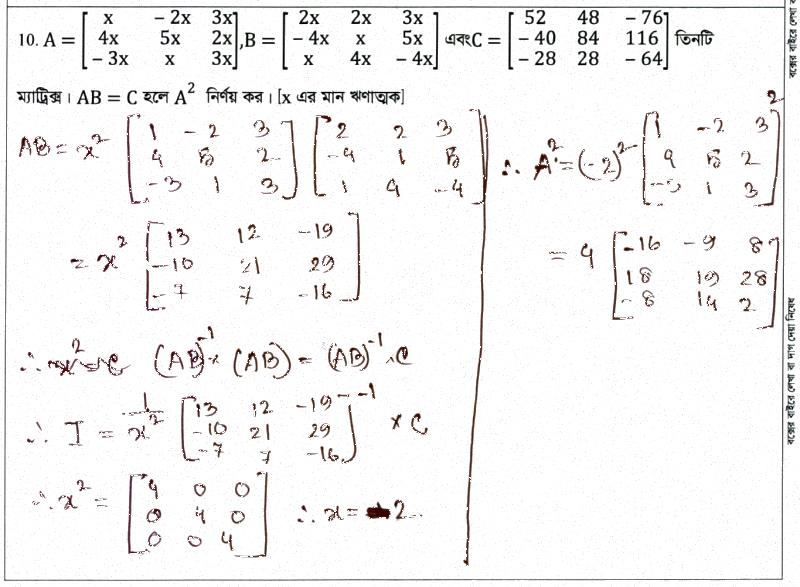 10. A = [ x  - 2x  3x ; 4x  5x  2x ; - 3x  x  3x ], B = [ 2x  2x  3x ; - 4x  x  5x ; x  4x  - 4x ] এবং C = [ 52  48  - 76 ; - 40  84  116 ; - 28  28  - 64 ] তিনটি
ম্যাট্রিক্স। AB = C হলে A² নির্ণয় কর। [x এর মান ঋণাত্মক]
AB = x² [ 1  -2  3 ; 4  5  2 ; -3  1  3 ] [ 2  2  3 ; -4  1  5 ; 1  4  -4 ]
= x² [ 13  12  -19 ; -10  21  29 ; -7  7  -16 ]
∴ (AB)⁻¹ × (AB) = (AB)⁻¹ . C
∴ I = 1/x² [ 13  12  -19 ; -10  21  29 ; -7  7  -16 ]⁻¹ × C
∴ x² = [ 4  0  0 ; 0  4  0 ; 0  0  4 ] ∴ x = -2
∴ A² = (-2)² [ 1  -2  3 ; 4  5  2 ; -3  1  3 ]²
= 4 [ -16  -9  8 ; 18  19  28 ; -8  14  2 ]
বক্সের বাইরে লেখা বা দাগ দেয়া নিষেধ
বক্সের বাইরে লেখা ব